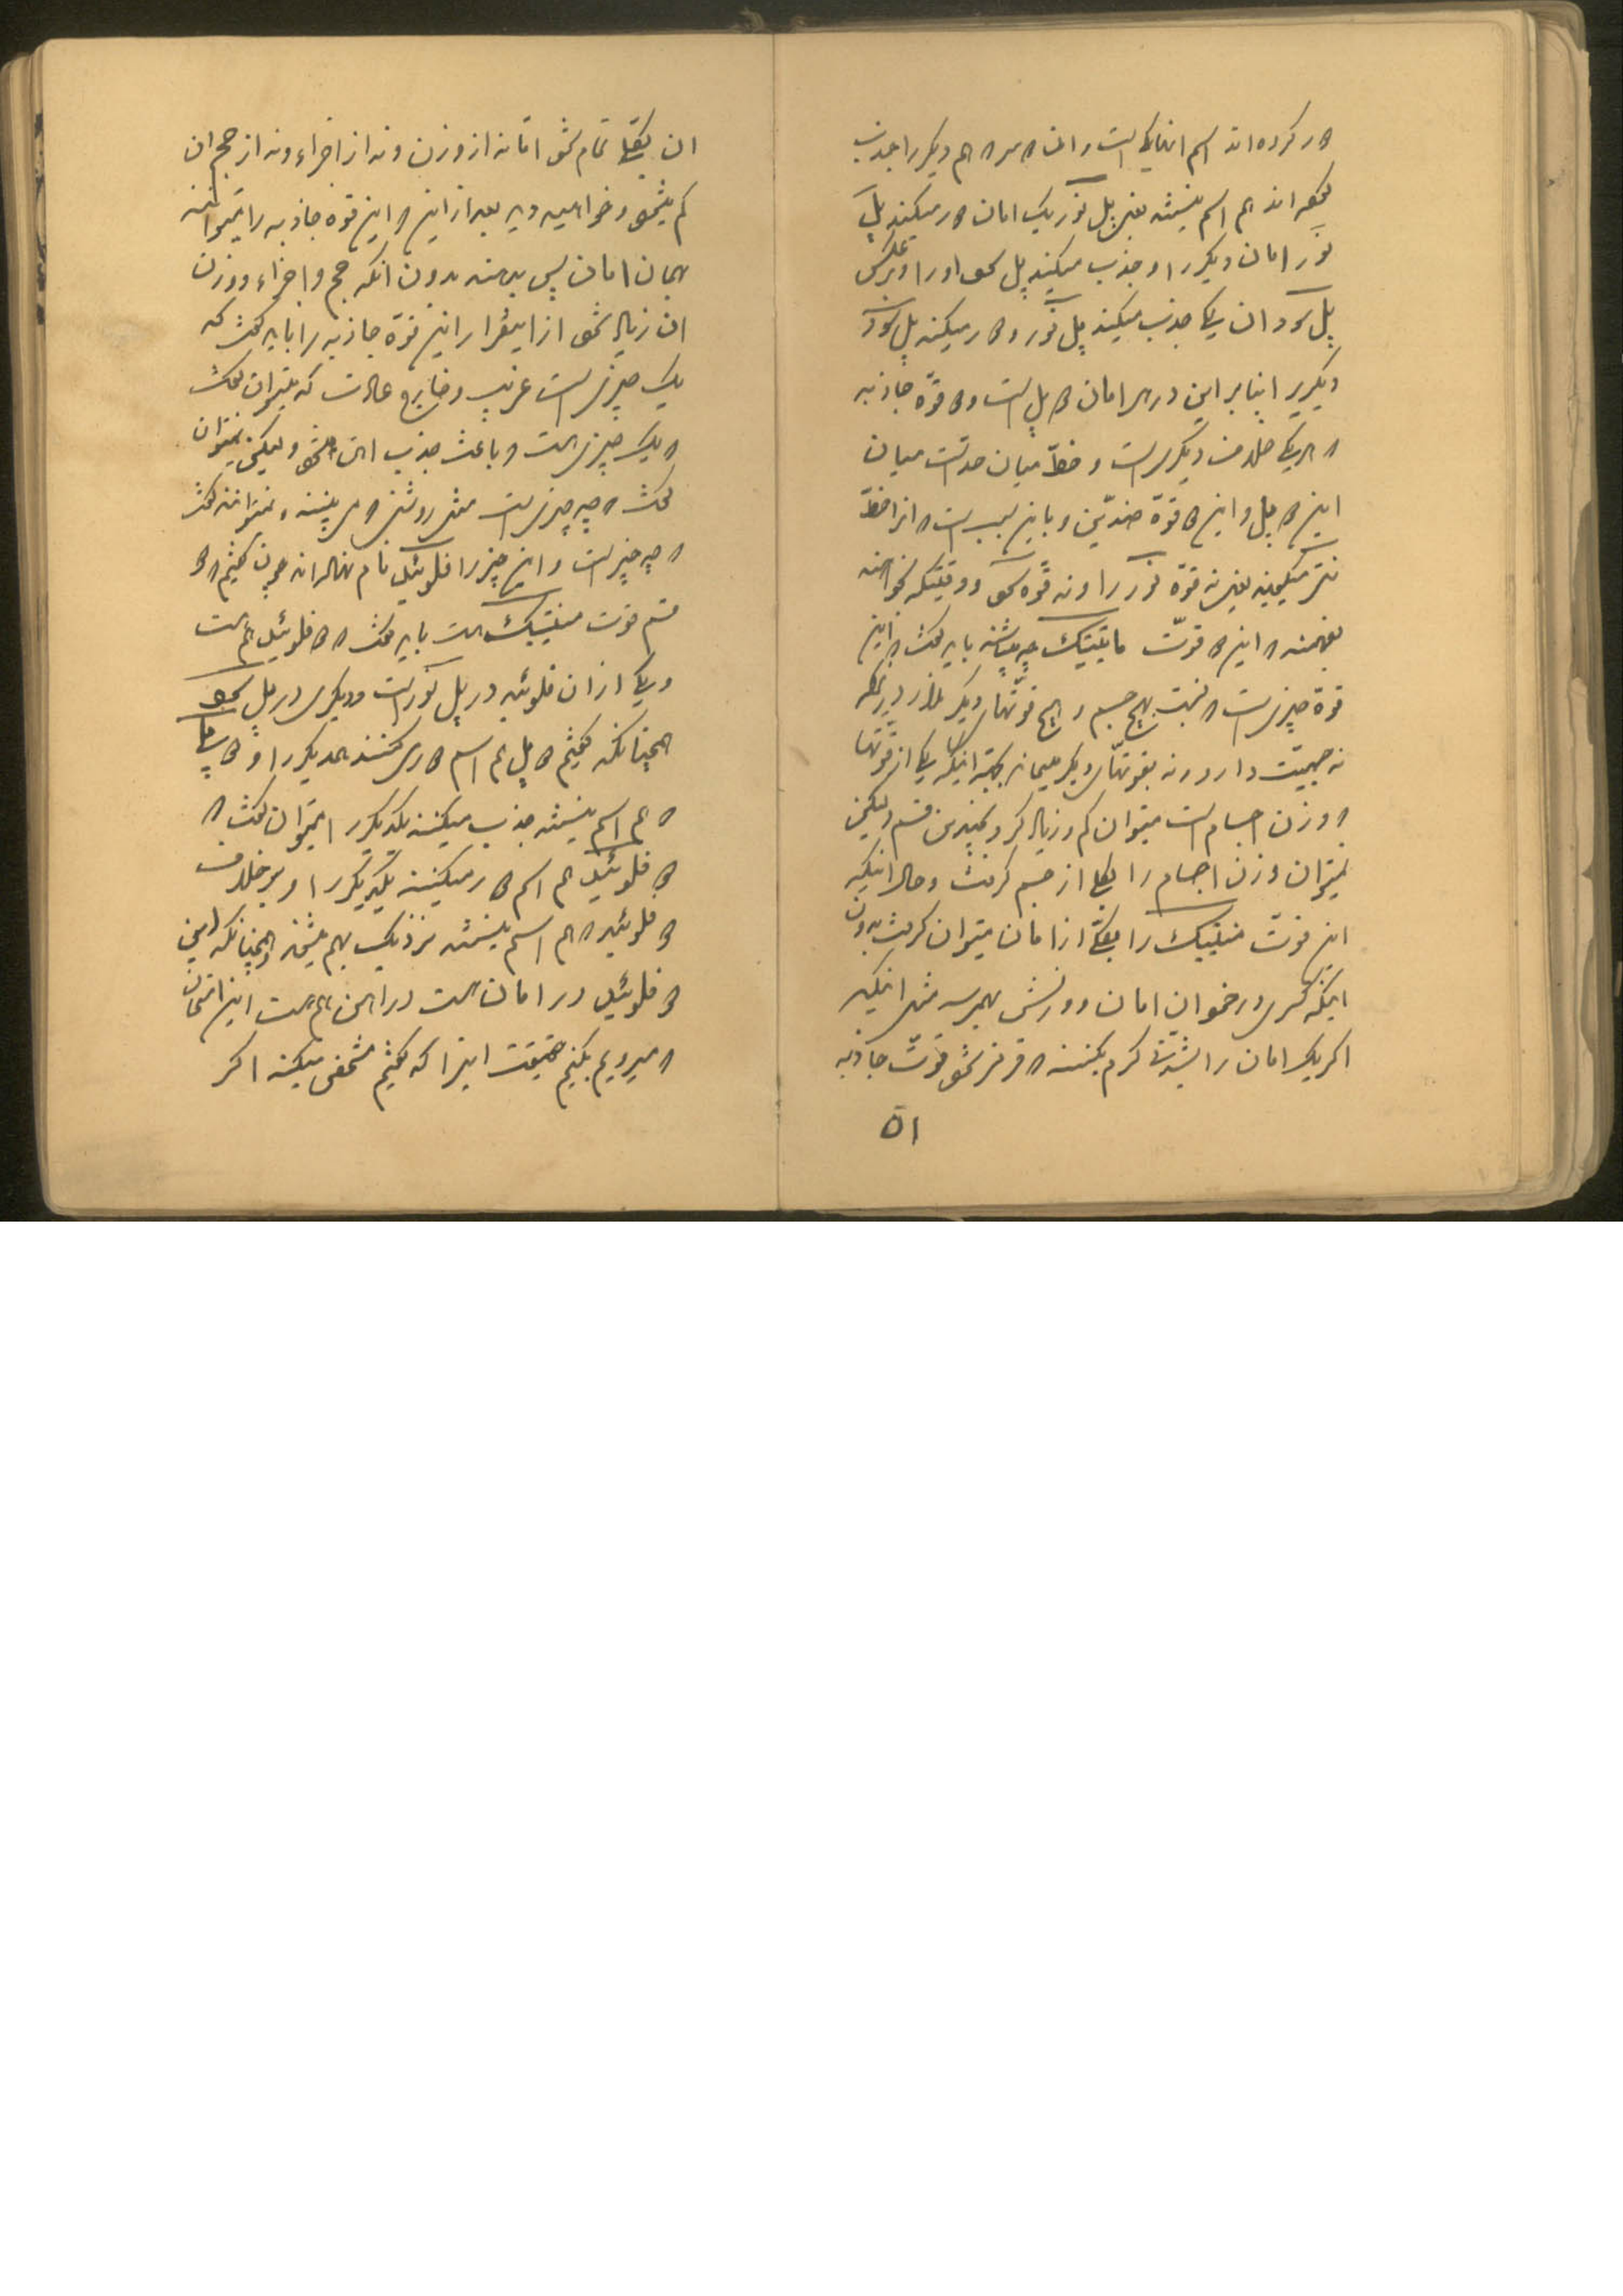 ور کرده‌اند اسم انها یکی است و انها هم دیگر را جذب
هم اسم نیستند یعنی پل نور یک امان دور میکند پل
نور امان دیگر را و جذب میکند پل سود او را و برعکس
پل سود ان یکی جذب میکند پل نور و دور میکند پل سود
دیگریرا بنابراین در هر امان دو پل است و دو قوّه جاذبه
که هر یکی خلاف دیگری است و خطّ میان حد است میان
این دو پل و این دو قوّه ضدّین و باین سبب است که انرا خطّ
نتر میگویند یعنی نه قوّه نور را و نه قوّه سود و وقتیکه بخواهند
بفهمند که این دو قوّت مانیتیک چه باشند باید گفت که این
قوّه چیزیست که نسبت بهیچ جسم و هیچ قوّتهای دیگر ندارد
نه جسمیّت دارد و نه بقوّتهای دیگر میماند بجهة اینکه یکی از قوّتها
که وزن اجسام است میتوان کم و زیاد کرد بچندین قسم ولیکن
نمیتوان وزن اجسام را بکلی از جسم گرفت و حال انکه
این قوّت منیتیک را بکلّی از امان میتوان گرفت بدون
اینکه کسری در خود ان امان و وزنش بهمرسد مثل اینکه
اگر یک امان را بشدّت گرم بکنند که قرمز شود قوّت جاذبه
۵۱
ان بکلی تمام شود امّا نه از وزن و نه از اجزاء و نه از حجم ان
کم میشود و خواهید دید بعد از این که این قوه جاذبه را میتوانند
بهمان امان پس بدهند بدون انکه حجم و اجزاء و وزن
ان زیاد شود از اینقرار این قوّه جاذبه را باید گفت که
یک چیزی است غریب و خارج عادت که میتوان گفت
که یک چیزی هست و باعث جذب اهن میشود ولیکن نمیتوان
گفت که چه چیزی است مثل روشنی که می‌بینند و نمیتوانند گفت
که چه چیز است و این چیز را فلوئید نام نهاده‌اند چون گفتیم که دو
قسم قوت منیتیک هست باید گفت که دو فلوئید هم هست
و یکی از ان فلوئید در پل نور است و دیگری در پل سود
همچنانکه گفتیم دو پل هم اسم دور میکنند همدیگر را و دو پل
که هم اسم نیستند جذب میکنند یکدیگر را میتوان گفت که
دو فلوئید هم اسم دور میکنند یکدیگر را و بر خلاف
دو فلوئید که هم اسم نیستند نزدیک بهم میشوند و همچنانکه این
دو فلوئید در امان هست در اهن هم هست این امتحان
که میرویم بکنیم حقیقت اینرا که گفتیم مشخص میکند اگر